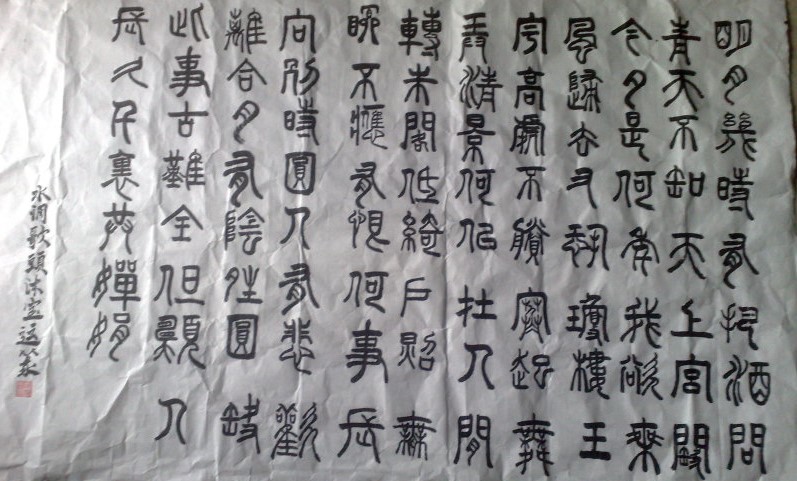 明月幾時有把酒問
青天不知天上宮闕
今夕是何年我欲乘
風歸去又恐瓊樓玉
宇高處不勝寒起舞
弄清景何似在人間
轉朱閣低綺戶照無
眠不應有恨何事長
向別時圓人有悲歡
離合月有陰晴圓缺
此事古難全但願人
長久千裏共嬋娟
水調歌頭